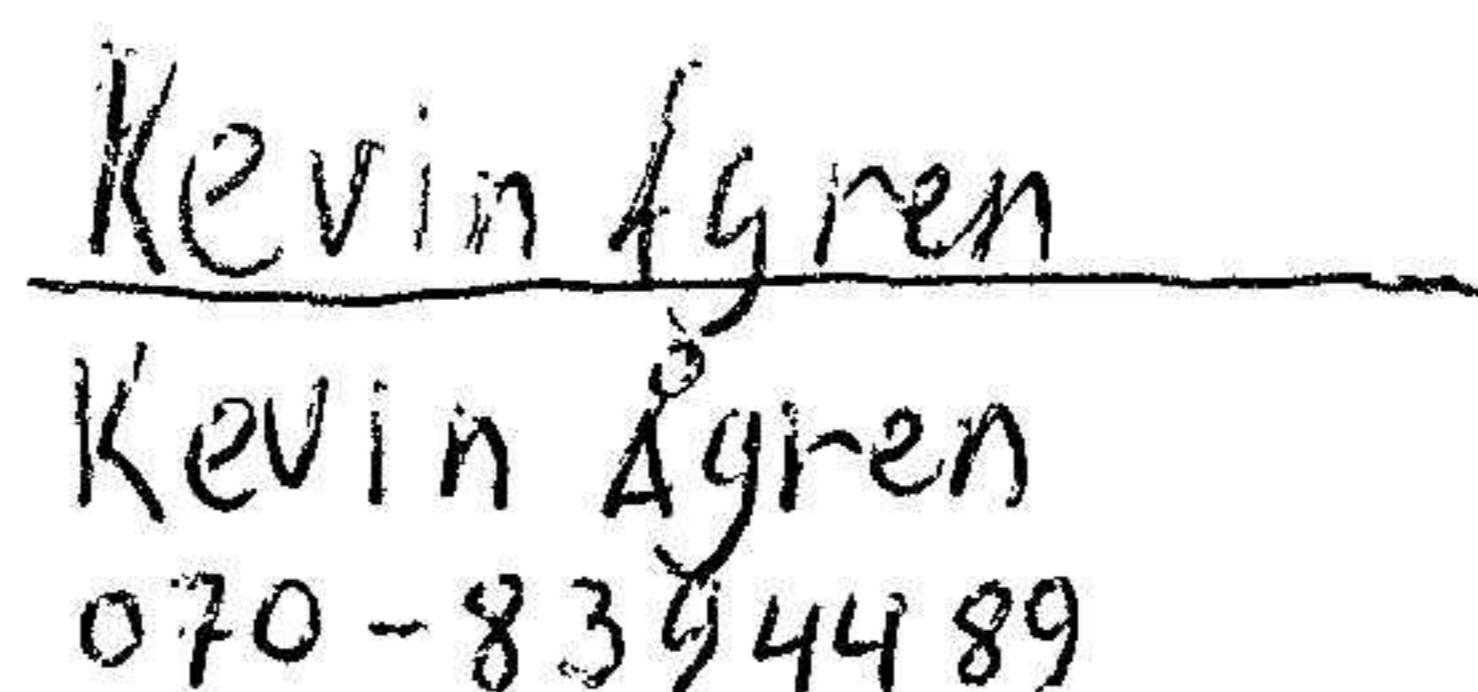 Kevin Ågren
Kevin Ågren
070-8394489